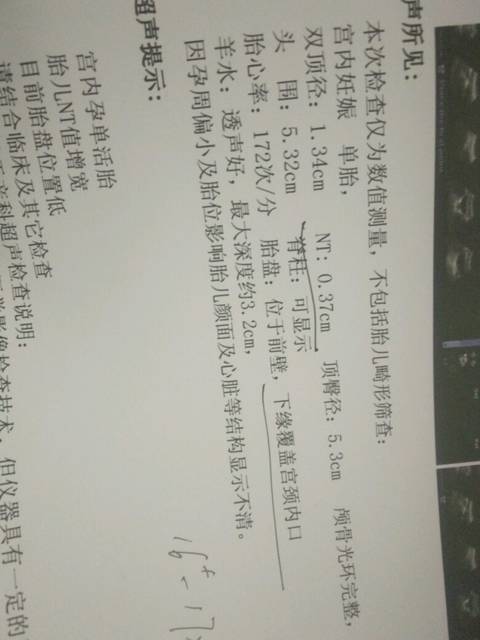 声所见：
本次检查仅为数值测量，不包括胎儿畸形筛查：
宫内妊娠　单胎，
双顶径：1.34cm　NT：0.37cm　顶臀径：5.3cm　颅骨光环完整，
头　围：5.32cm　脊柱：可显示
胎心率：172次/分　胎盘：位于前壁，下缘覆盖宫颈内口
羊水：透声好，最大深度约3.2cm，
因孕周偏小及胎位影响胎儿颜面及心脏等结构显示不清。
超声提示：
宫内孕单活胎
胎儿NT值增宽
目前胎盘位置低
请结合临床及其它检查
产科超声检查说明：
影像检查技术，但仪器具有一定的
16+ - 17